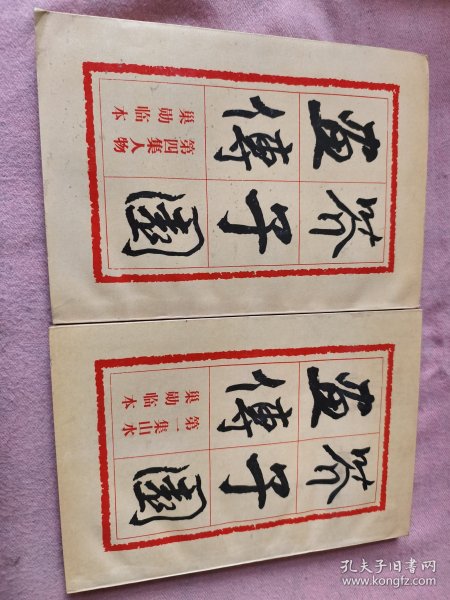 芥子園
画傳
第四集人物
巢勋临本
芥子園
画傳
第一集山水
巢勋临本
孔夫子旧书网
www.kongfz.com